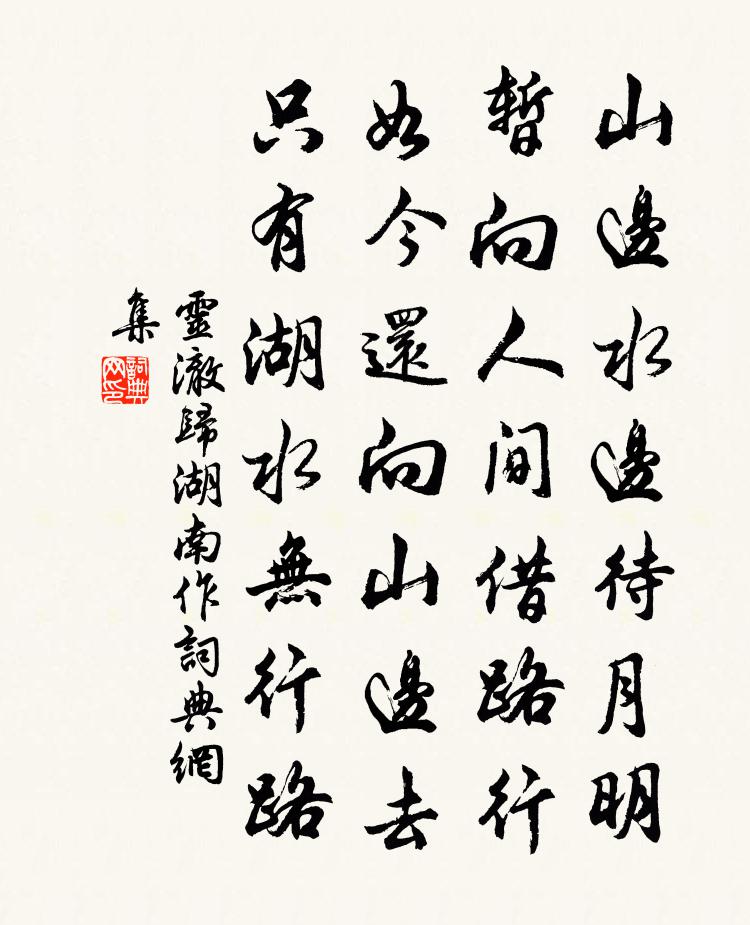 山邊水邊待月明
暫向人間借路行
如今還向山邊去
只有湖水無行路
靈澈歸湖南作詞典網
集
詞典網印